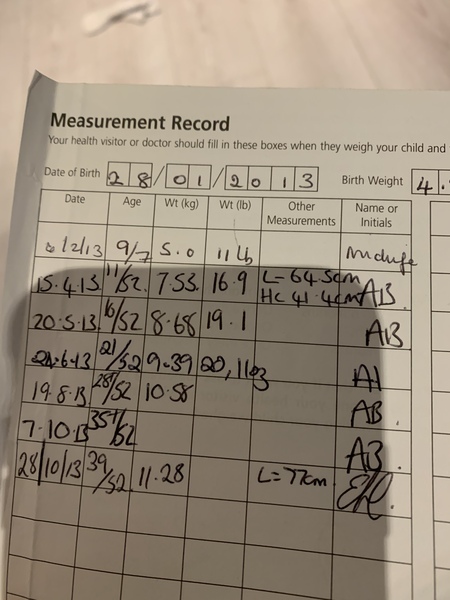 Measurement Record
Your health visitor or doctor should fill in these boxes when they weigh your child and
Date of Birth 28/01/2013 Birth Weight 4.
Date Age Wt (kg) Wt (lb) Other Measurements Name or Initials
6/2/13 9/7 5.0 11 lb
15.4.13 11/52. 7.53. 16.9 L-64.5cm Hc 41.4cm AB
20.5.13 16/52 8.68 19.1 AB
6.13 21/52 9.39 20, 11oz A1
19.8.13 28/52 10.58 AB
7.10.13 35/52 AB.
28/10/13 39/52. 11.28 L=77cm